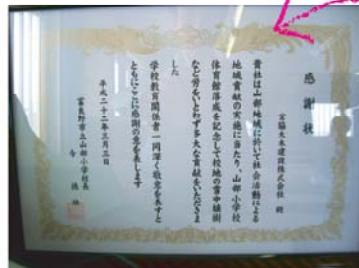 感謝状
宮脇土木建設株式会社 殿
貴社は山部地域に於いて社会活動による
地域貢献の実施に当たり、山部小学校
体育館落成を記念して校地の雪中植樹
など労をいとわず多大な貢献をいただきま
した
学校教育関係者一同深く敬意を表すと
ともにここに感謝の意を表します
平成二十二年三月三日
富良野市立山部小学校長